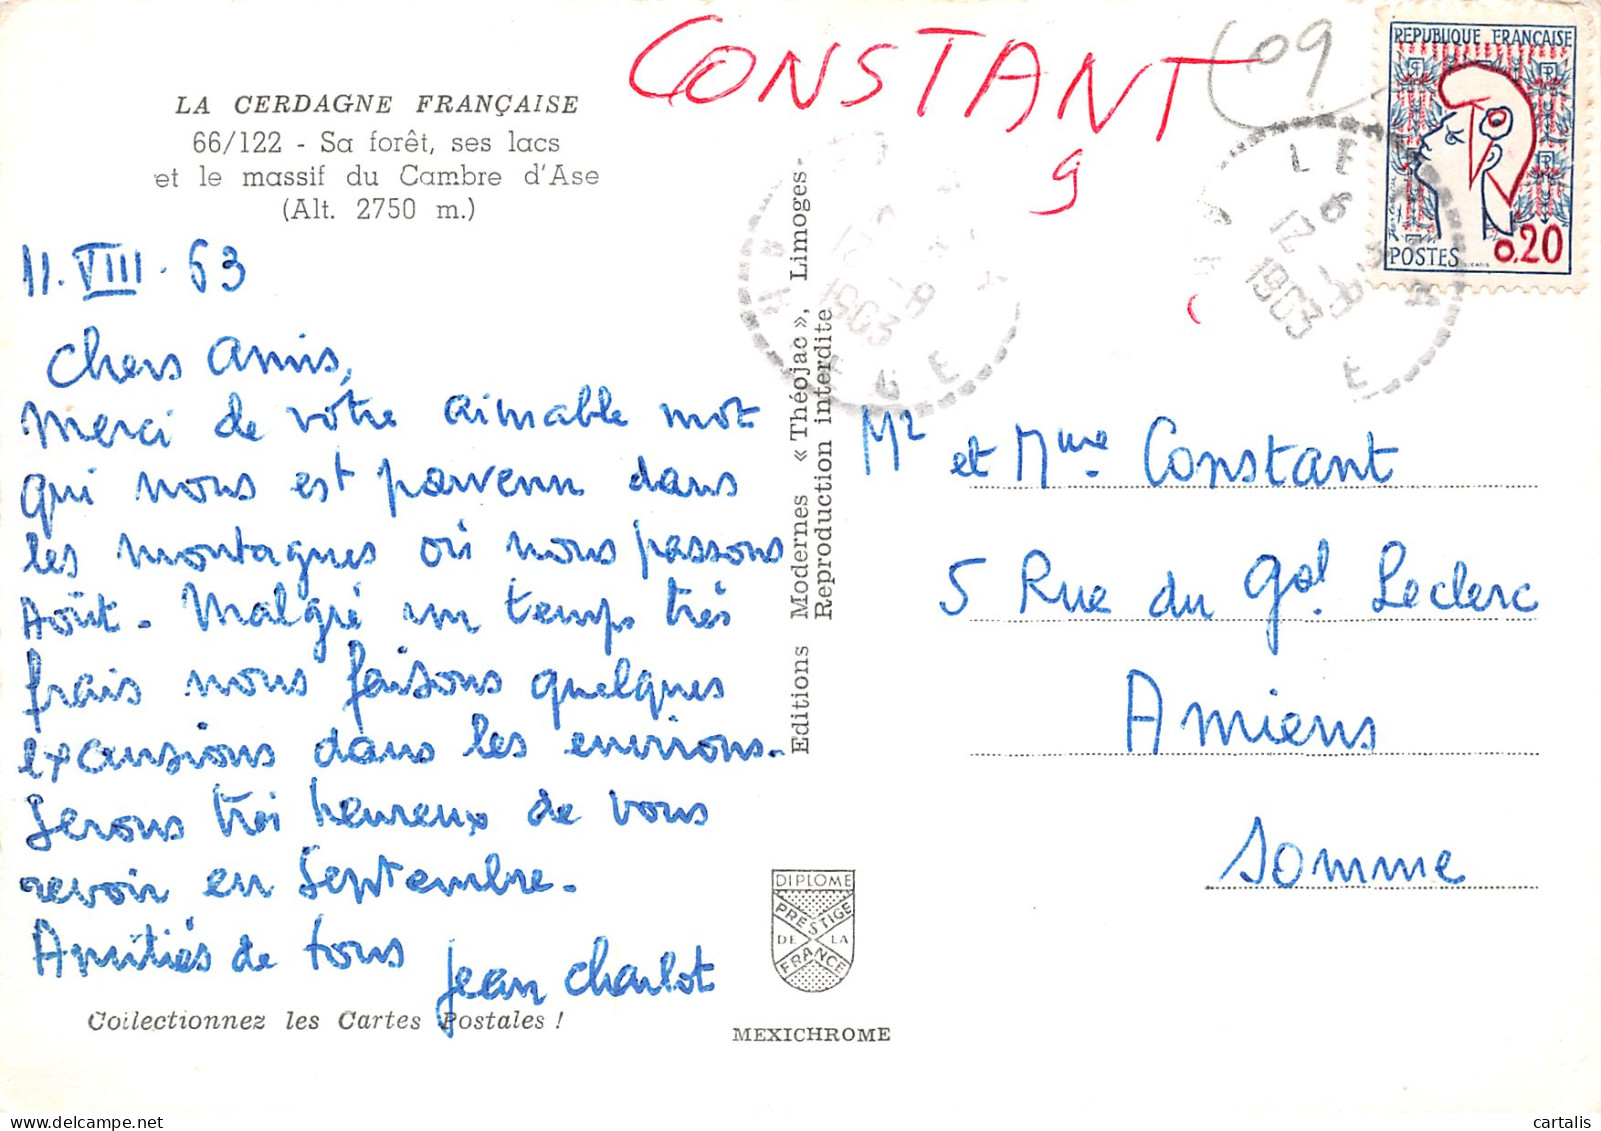 LA CERDAGNE FRANÇAISE
66/122 - Sa forêt, ses lacs
et le massif du Cambre d'Ase
(Alt. 2750 m.)
11.VIII.63
Chers Amis,
Merci de votre aimable mot
qui nous est parvenu dans
les montagnes où nous passons
Août. Malgré un temps très
frais nous faisons quelques
excursions dans les environs.
Serons très heureux de vous
revoir en Septembre.
Amitiés de tous
Jean Charlot
Collectionnez les Cartes Postales !
Editions Modernes « Théojac », Limoges
Reproduction interdite
DIPLOME
PRESTIGE
DE LA
FRANCE
MEXICHROME
CONSTANT
9
609
REPUBLIQUE FRANÇAISE
POSTES 0,20
12 -8
1963
12 -8
1963
Mr et Mme Constant
5 Rue du Gal Leclerc
Amiens
Somme
cartalis
www.delcampe.net